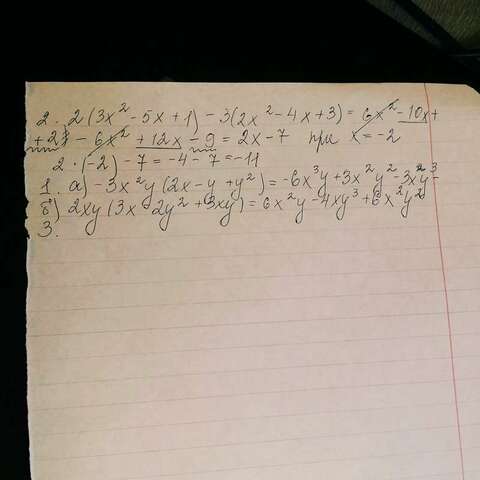 2. 2(3x² - 5x + 1) - 3(2x² - 4x + 3) = 6x² - 10x +
+ 2 - 6x² + 12x - 9 = 2x - 7 при x = -2
2 · (-2) - 7 = -4 - 7 = -11
1. а) -3x²y(2x - y + y²) = -6x³y + 3x²y² - 3x²y³
б) 2xy(3x - 2y² + 3xy) = 6x²y - 4xy³ + 6x²y²
3.